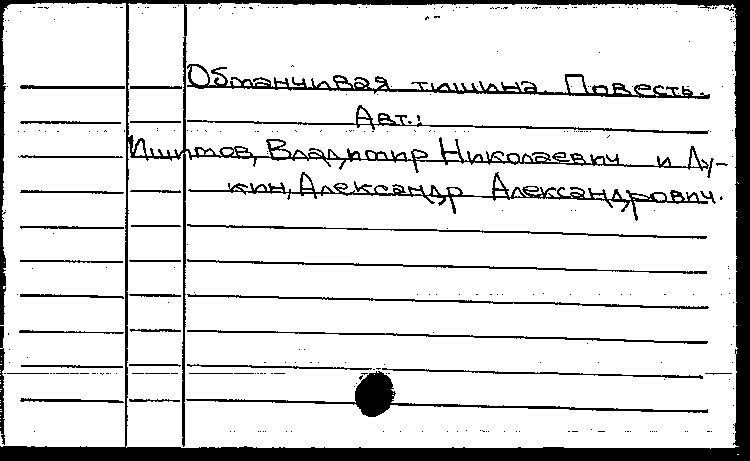 Обманчивая тишина. Повесть.
Авт.:
Ишимов, Владимир Николаевич и Лу-
кин, Александр Александрович.